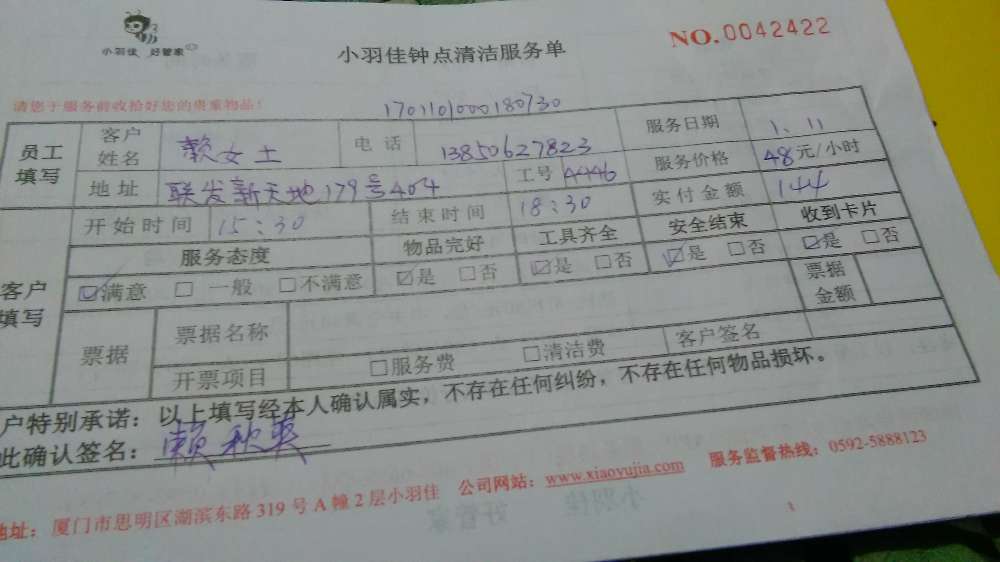 小羽佳 好管家
小羽佳钟点清洁服务单
NO.0042422
请您于服务前收拾好您的贵重物品!
170110100018073​0
员工填写 客户姓名 赖女士 电话 13850627823 服务日期 1.11
地址 联发新天地179号404 工号 A446 服务价格 48元/小时
开始时间 15:30 结束时间 18:30 实付金额 144
客户填写 服务态度 物品完好 工具齐全 安全结束 收到卡片
☑满意 □一般 □不满意 ☑是 □否 ☑是 □否 ☑是 □否 ☑是 □否
票据 票据名称 票据金额
开票项目 □服务费 □清洁费 客户签名
户特别承诺:以上填写经本人确认属实,不存在任何纠纷,不存在任何物品损坏。
此确认签名:赖秋英
地址:厦门市思明区湖滨东路319号A幢2层小羽佳 公司网站:www.xiaoyujia.com 服务监督热线:0592-5888123